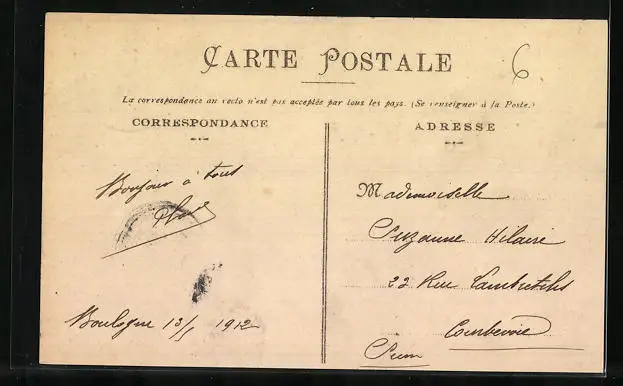 CARTE POSTALE
6
La correspondance au recto n'est pas acceptée par tous les pays. (Se renseigner à la Poste.)
CORRESPONDANCE
ADRESSE
Bonjour à tous
Mademoiselle
Suzanne Hilaire
22 Rue
Courbevoie
Boulogne 13/5 1912